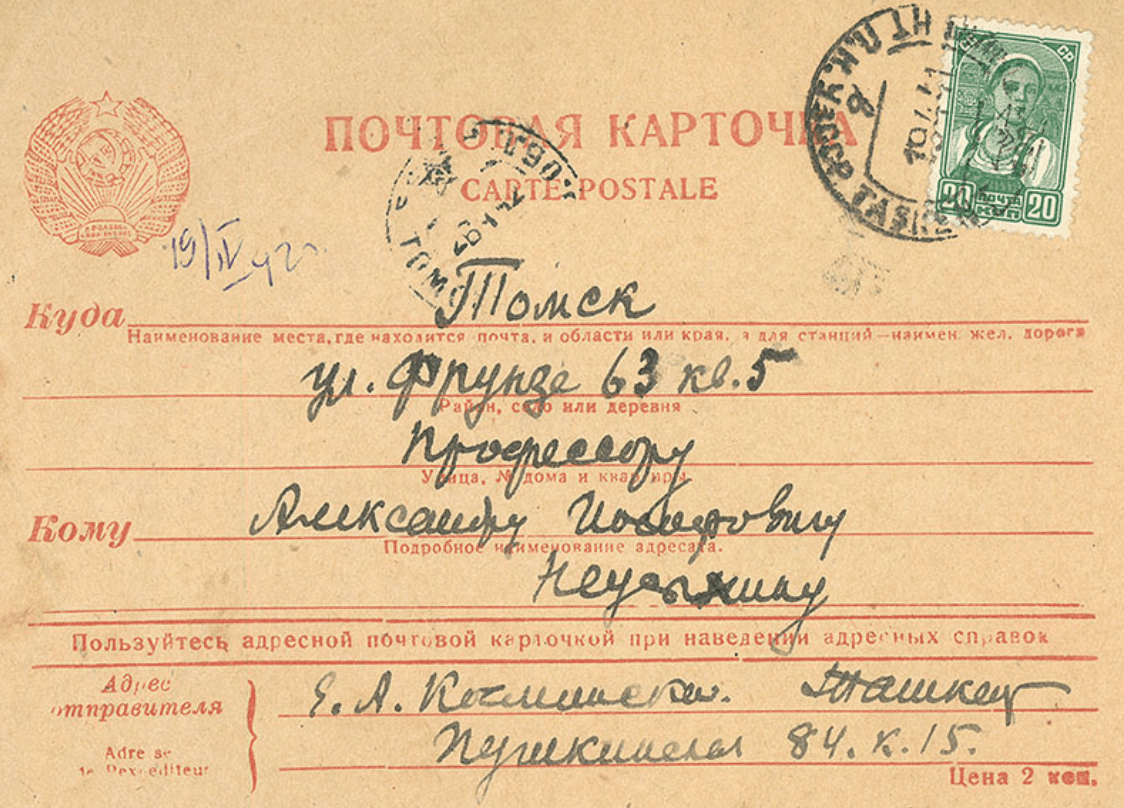 ПОЧТОВАЯ КАРТОЧКА
CARTE POSTALE
СССР
20 ПОЧТА 20
19/IV 42
Куда Томск
Наименование места, где находится почта, и области или края, а для станций—наимен. жел. дороги
ул. Фрунзе 63 кв. 5
Район, село или деревня
Профессору
Улица, № дома и квартиры
Кому Александру Иосифовичу
Подробное наименование адресата.
Неусыхину
Пользуйтесь адресной почтовой карточкой при наведении адресных справок
Адрес отправителя
Е. А. Косминская. Ташкент
Пушкинская 84. к. 15.
Adresse de l'expéditeur
Цена 2 коп.